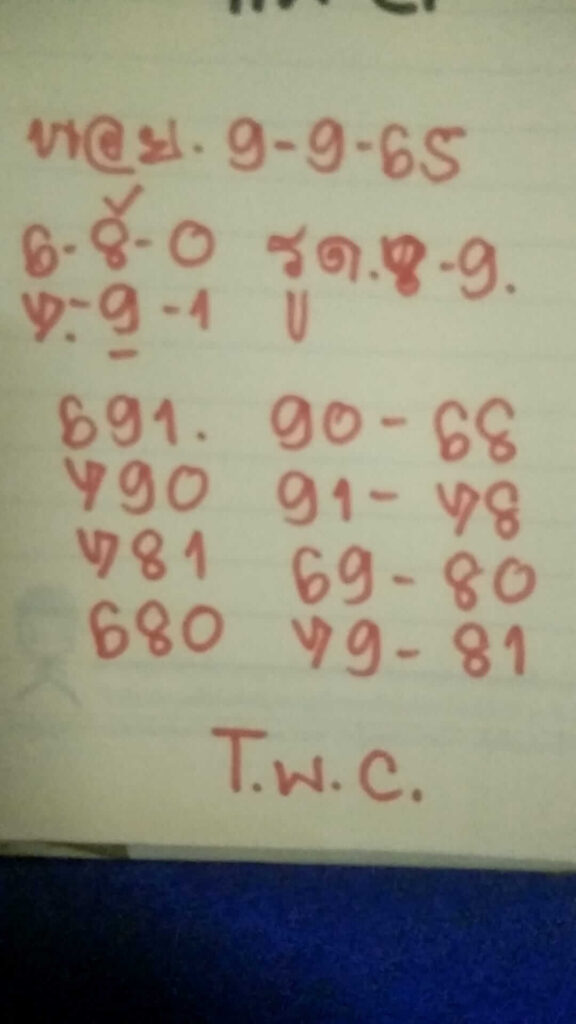 ห@ย. 9-9-65
6-8-0 รด.8-9.
4.-9-1
691. 90-68
490 91-48
481 69-80
680 49-81
T.W.C.